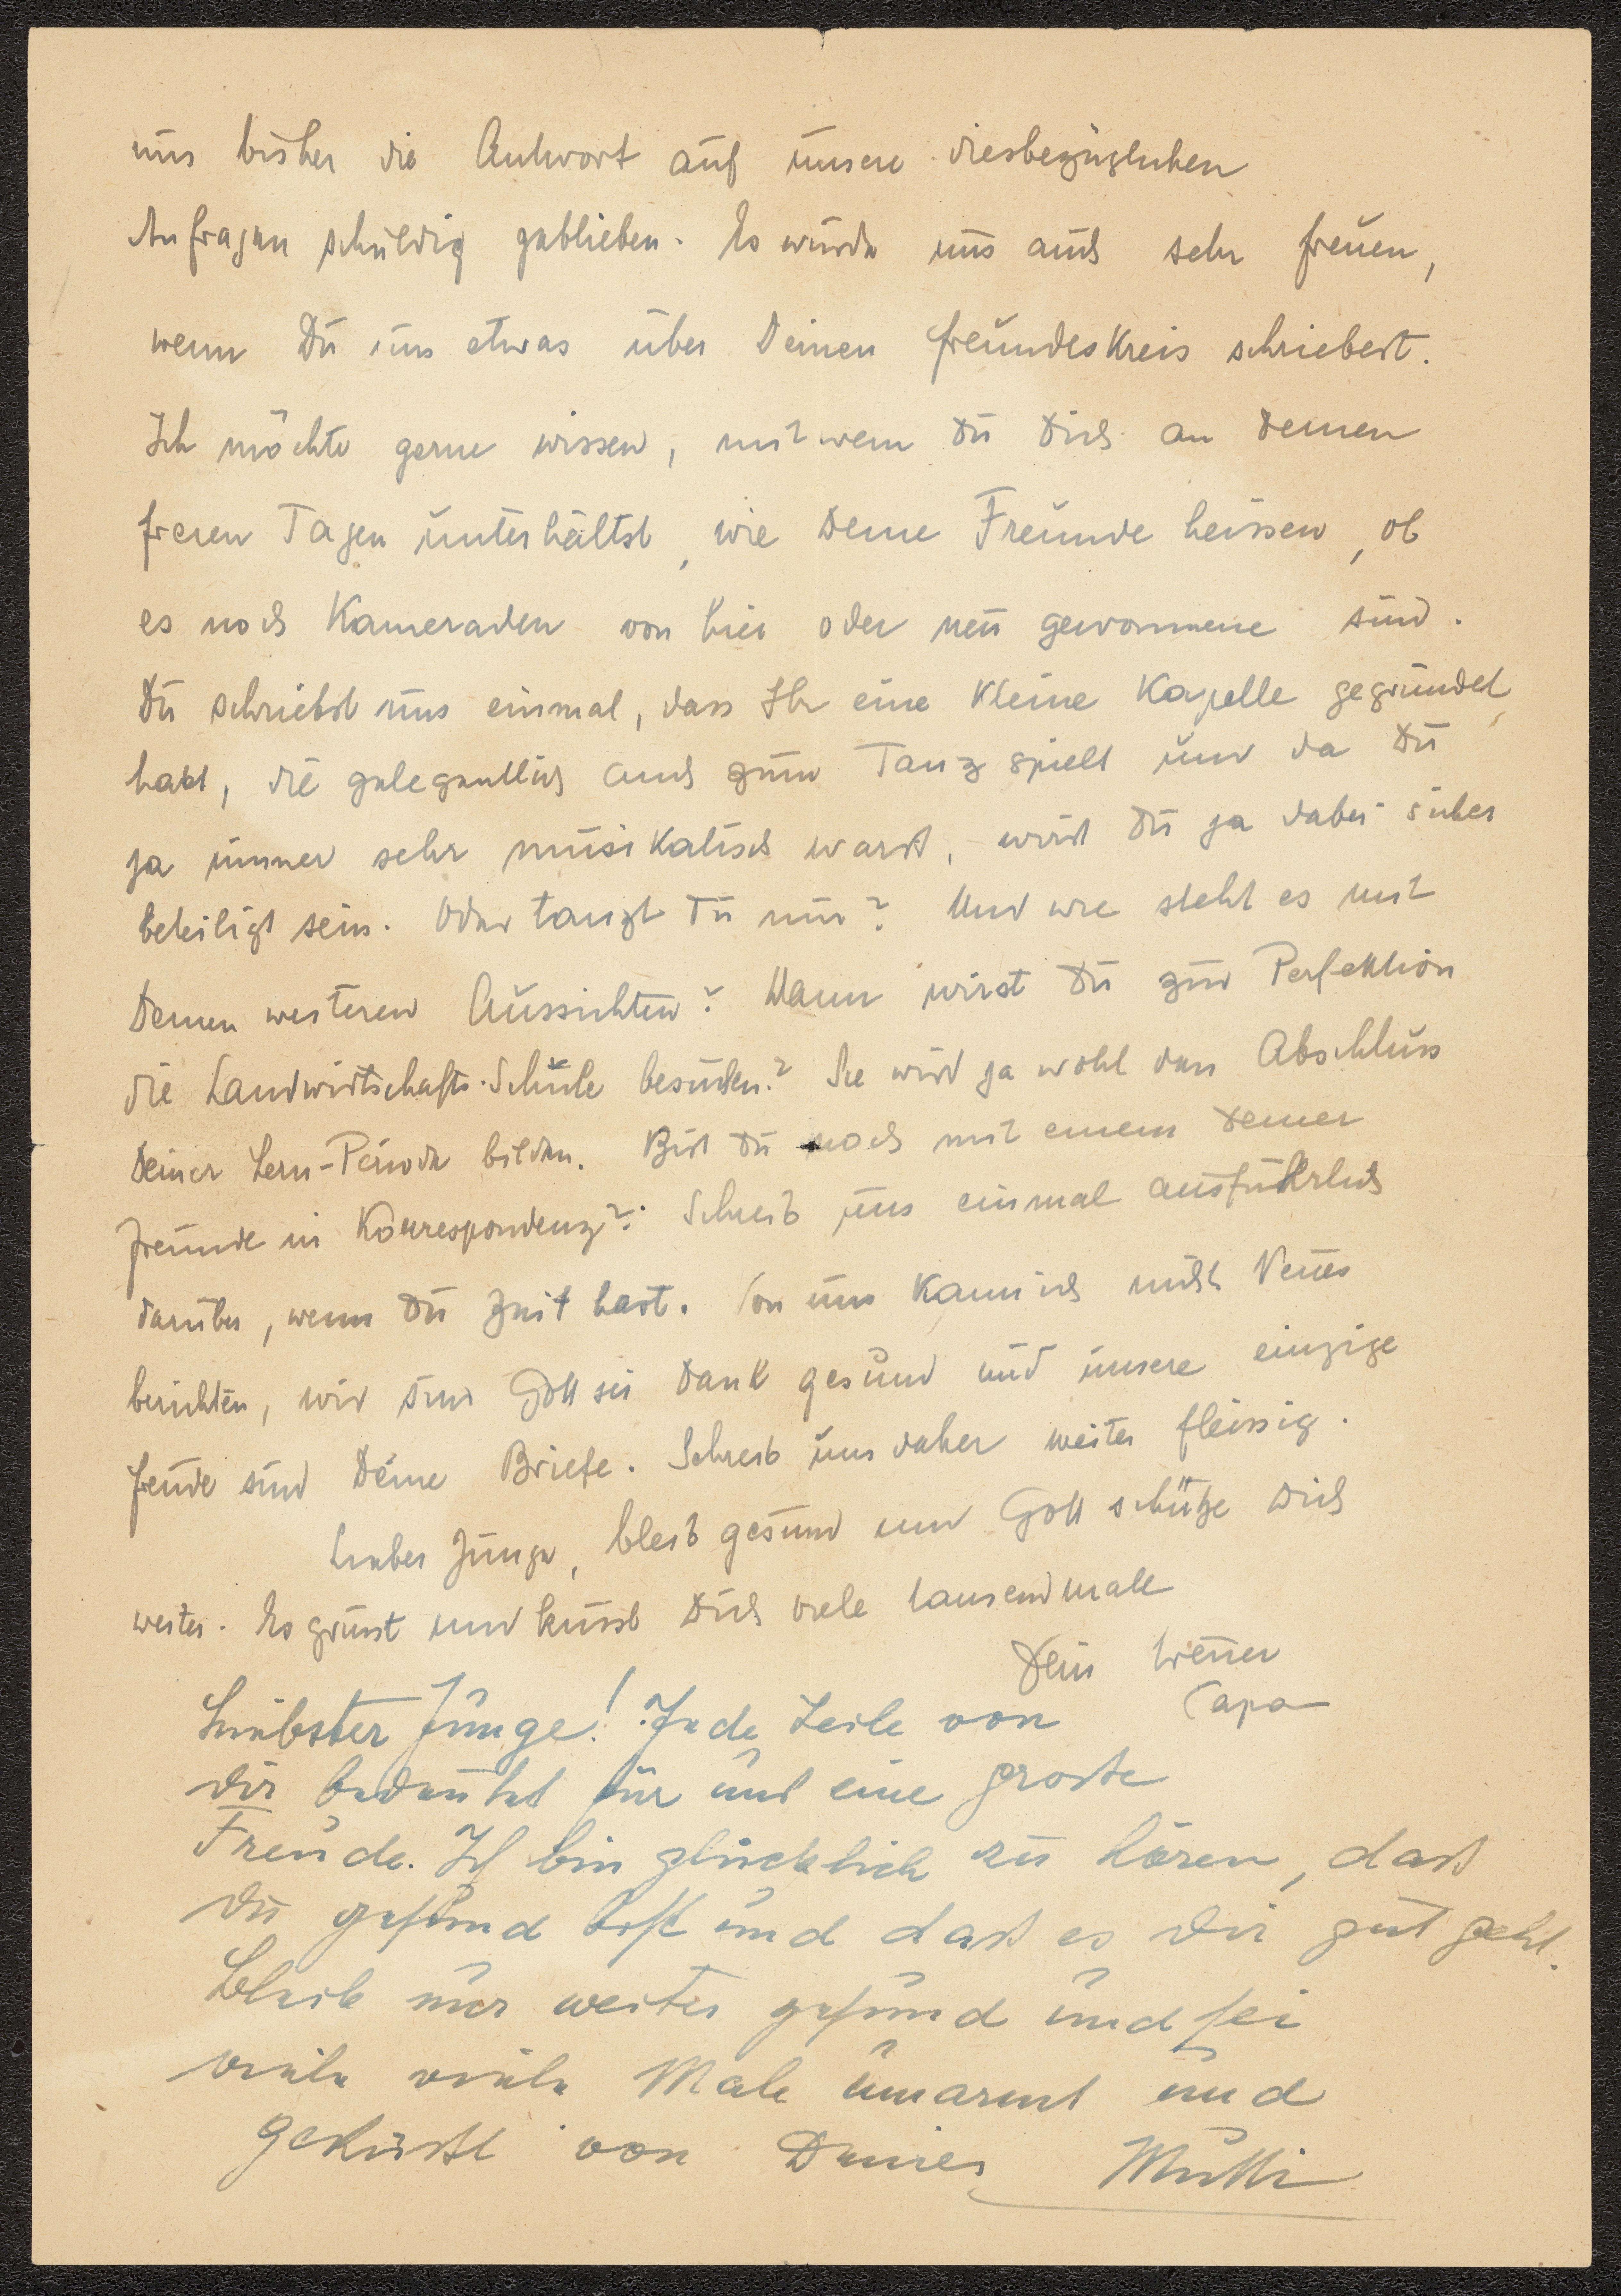 uns bisher die Antwort auf unsere diesbezüglichen
Anfragen schuldig geblieben. Es würde uns auch sehr freuen,
wenn Du uns etwas über Deinen Freundeskreis schriebest.
Ich möchte gerne wissen, mit wem Du Dich an Deinen
freien Tagen unterhältst, wie Deine Freunde heissen, ob
es noch Kameraden von hier oder neu gewonnene sind.
Du schriebst uns einmal, dass Ihr eine kleine Kapelle gegründet
habt, die gelegentlich auch zum Tanz spielt und da Du
ja immer sehr musikalisch warst, wirst Du ja dabei sicher
beteiligt sein. Oder tanzt Du nur? Und wie steht es mit
Deinen weiteren Aussichten? Wann wirst Du zur Perfektion
die Landwirtschafts-Schule besuchen? Sie wird ja wohl den Abschluss
Deiner Lern-Periode bilden. Bist Du noch mit einem Deiner
Freunde in Korrespondenz? Schreib uns einmal ausführlich
darüber, wenn Du Zeit hast. Von uns kann ich nicht Neues
berichten, wir sind Gott sei Dank gesund und unsere einzige
Freude sind Deine Briefe. Schreib uns daher weiter fleissig.
Lieber Junge, bleib gesund und Gott schütze Dich
weiter. Es grüsst und küsst Dich viele tausendmale
Dein treuer
Papa
Liebster Junge! Jede Zeile von
Dir bedeutet für uns eine grosse
Freude. Ich bin glücklich zu hören, dass
Du gesund bist und dass es Dir gut geht.
Bleib nur weiter gesund und sei
viele viele Male umarmt und
geküsst von Deiner Mutti